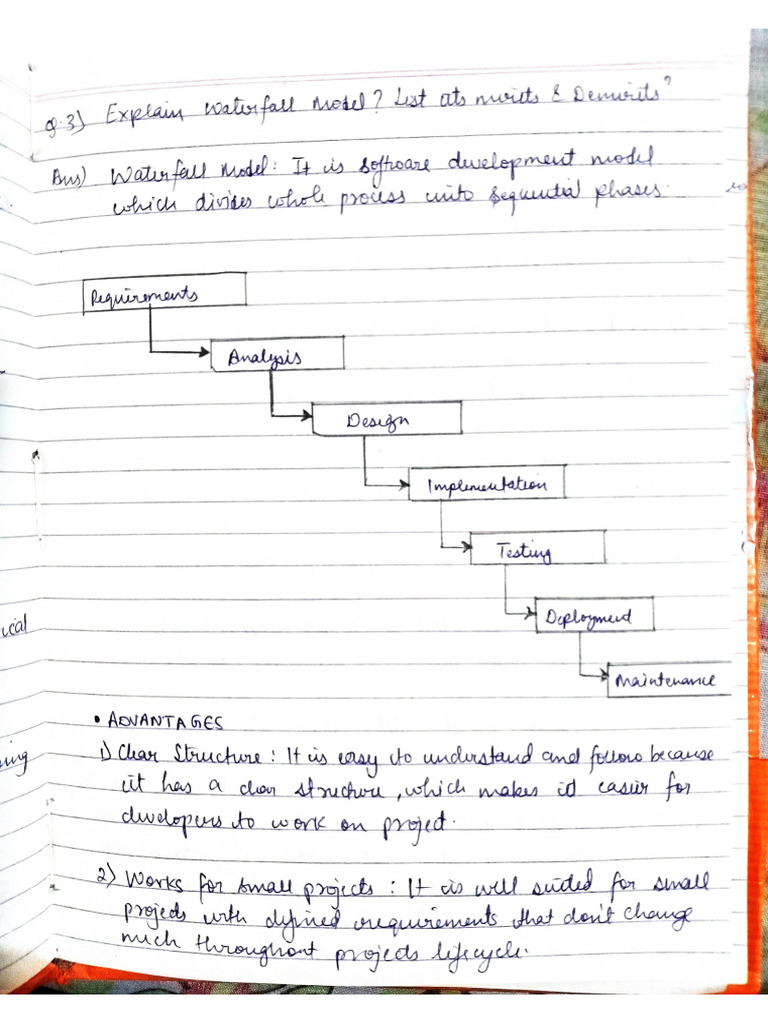 Q.3) Explain Waterfall Model? List its merits & Demerits?
Ans) Waterfall Model: It is software development model
which divides whole process into sequential phases.
Requirements
Analysis
Design
Implementation
Testing
Deployment
Maintenance
• ADVANTAGES
1) Clear Structure: It is easy to understand and follow because
it has a clear structure, which makes it easier for
developers to work on project.
2) Works for small projects: It is well suited for small
projects with defined requirements that don't change
much throughout projects lifecycle.
ical
ing